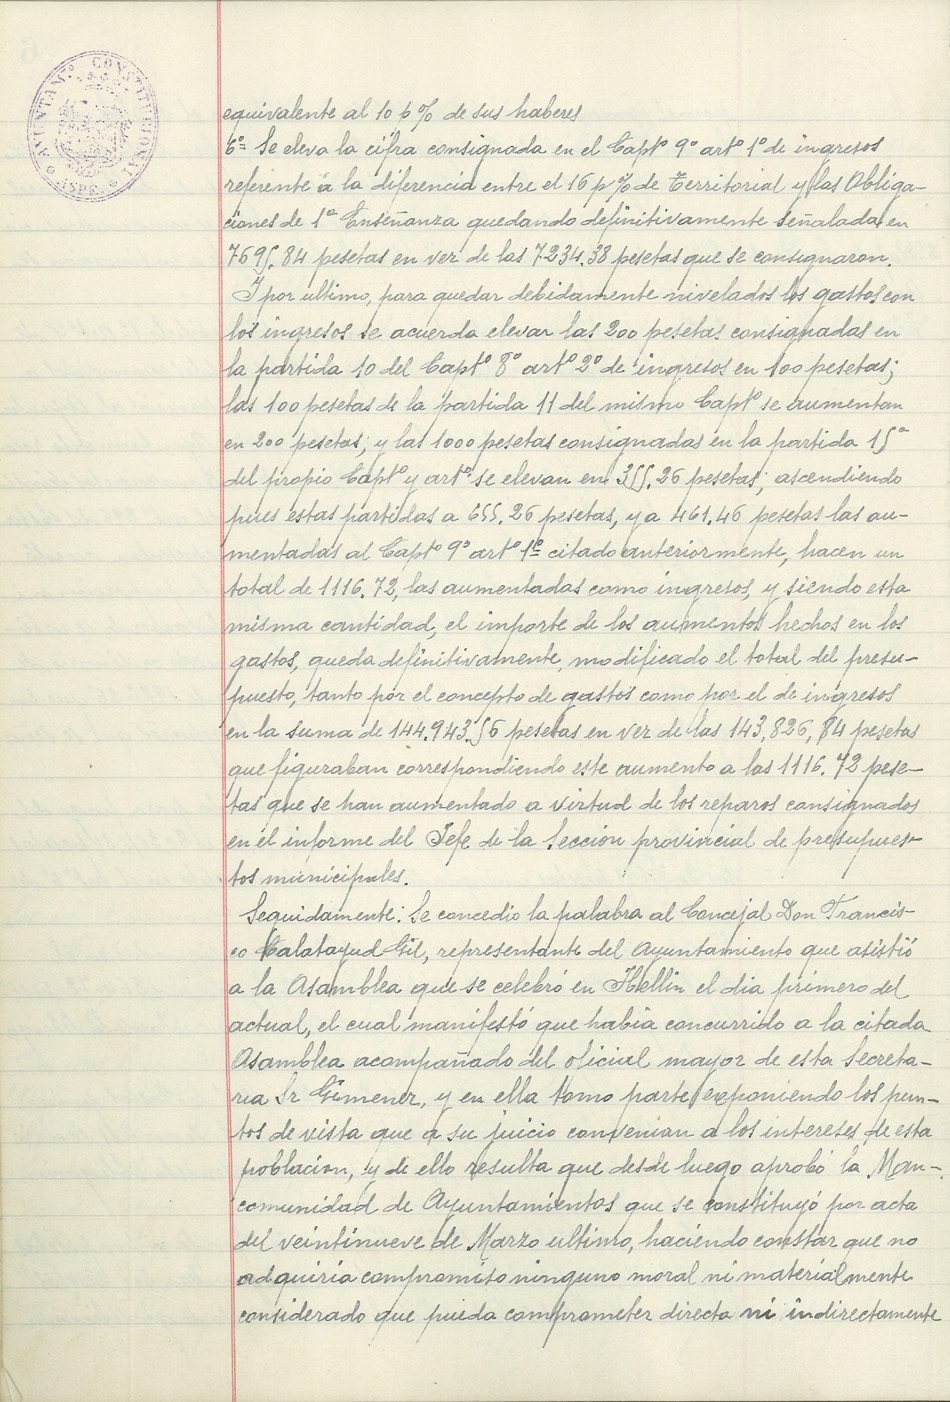 AYUNTAMº CONSTITUCIONAL
ASPE
equivalente al 10 p% de sus haberes
6º= Se eleva la cifra consignada en el Captº 9º artº 1º de ingresos
referente a la diferencia entre el 16 p% de Territorial y las Obliga-
ciones de 1ª Enseñanza quedando definitivamente señalada en
7695.84 pesetas en vez de las 7234.38 pesetas que se consignaron.
Y por ultimo, para quedar debidamente nivelados los gastos con
los ingresos se acuerda elevar las 200 pesetas consignadas en
la partida 10 del Captº 8º artº 2º de ingresos en 100 pesetas;
las 100 pesetas de la partida 11 del mismo Captº se aumentan
en 200 pesetas; y las 1000 pesetas consignadas en la partida 15ª
del propio Captº y artº se elevan en 355.26 pesetas; ascendiendo
pues estas partidas a 655.26 pesetas, y a 461.46 pesetas las au-
mentadas al Captº 9º artº 1º citado anteriormente, hacen un
total de 1116.72, las aumentadas como ingresos, y siendo esta
misma cantidad, el importe de los aumentos hechos en los
gastos, queda definitivamente, modificado el total del presu-
puesto, tanto por el concepto de gastos como por el de ingresos
en la suma de 144.943.56 pesetas en vez de las 143,826,84 pesetas
que figuraban correspondiendo este aumento a las 1116.72 pese-
tas que se han aumentado a virtud de los reparos consignados
en el informe del Jefe de la Seccion provincial de presupues-
tos municipales.
Seguidamente: Se concedio la palabra al Concejal Don Francis-
co Calatayud Gil, representante del Ayuntamiento que asistió
a la Asamblea que se celebró en Hellin el dia primero del
actual, el cual manifestó que habia concurrido a la citada
Asamblea acompañado del oficial mayor de esta Secreta-
ria Sr Gimenez, y en ella tomo parte exponiendo los pun-
tos de vista que a su juicio convenian a los intereses de esta
poblacion, y de ello resulta que desde luego aprobó la Man-
comunidad de Ayuntamientos que se constituyó por acta
del veintinueve de Marzo ultimo, haciendo constar que no
adquiria compromiso ninguno moral ni materialmente
considerado que pueda comprometer directa ni indirectamente